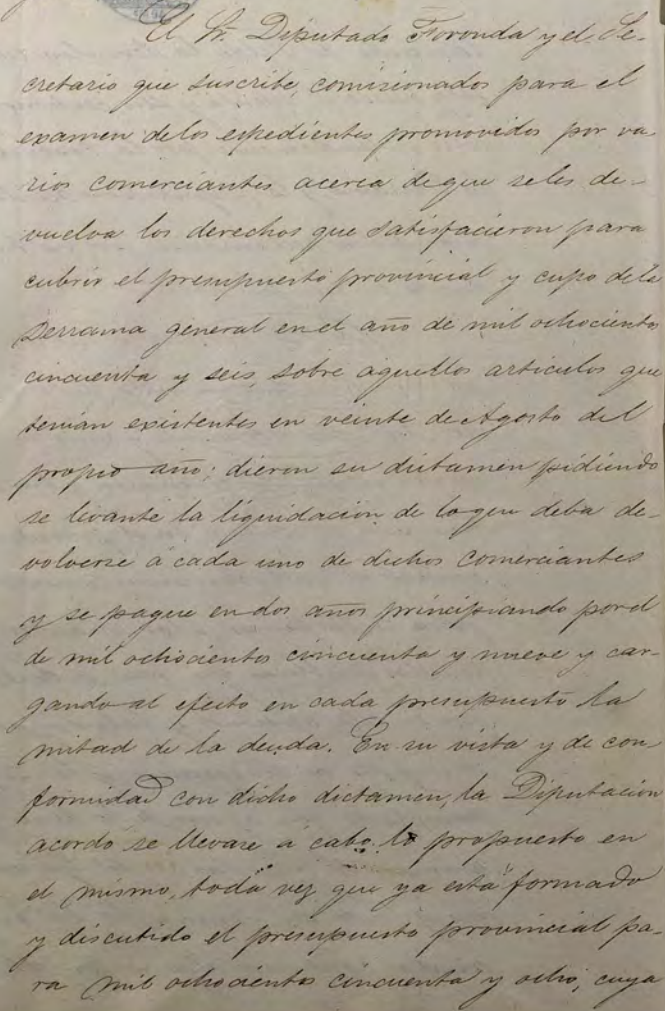 El Sr. Diputado Foronda y el Se-
cretario que suscribe, comisionados para el
examen de los espedientes promovidos por va-
rios comerciantes acerca de que se les de-
vuelva los derechos que satisfacieron para
cubrir el presupuesto provincial y cupo de la
Derrama general en el año de mil ochocientos
cincuenta y seis, sobre aquellos articulos que
tenian existentes en veinte de Agosto del
propio año; dieron su dictamen pidiendo
se levante la liquidación de lo que deba de-
volverse á cada uno de dichos comerciantes
y se pague en dos años principiando por el
de mil ochocientos cincuenta y nueve y car-
gando al efecto en cada presupuesto la
mitad de la deuda. En su vista y de con-
formidad con dicho dictamen, la Diputacion
acordó se llevare á cabo lo propuesto en
el mismo, toda vez que ya está formado
y discutido el presupuesto provincial pa-
ra mil ochocientos cincuenta y ocho, cuya